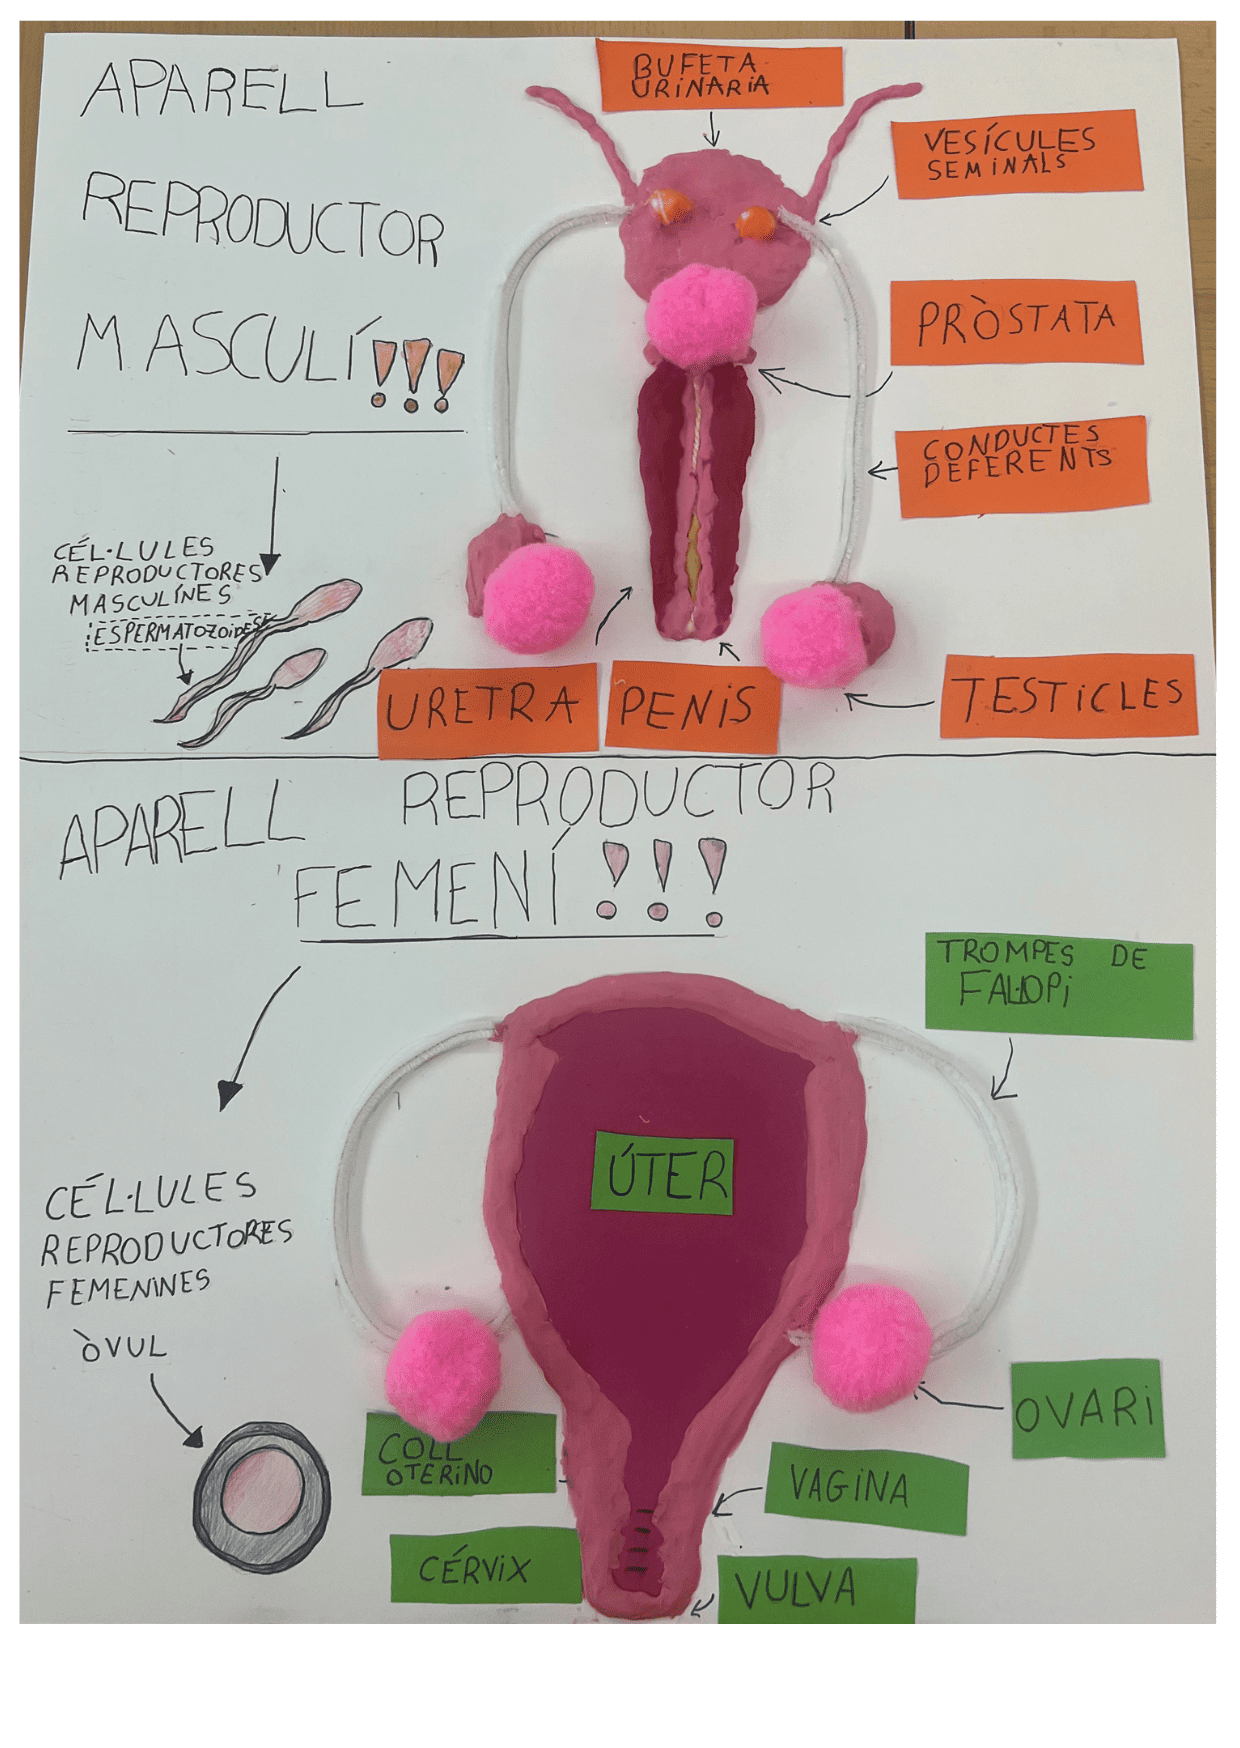 APARELL
REPRODUCTOR
MASCULÍ!!!
BUFETA
URINARIA
VESÍCULES
SEMINALS
PRÒSTATA
CONDUCTES
DEFERENTS
CÉL·LULES
REPRODUCTORES
MASCULÍNES
ESPERMATOZOIDES
URETRA
PENIS
TESTICLES
APARELL REPRODUCTOR
FEMENÍ!!!
TROMPES DE
FAL·LOPI
ÚTER
CÉL·LULES
REPRODUCTORES
FEMENINES
ÒVUL
OVARI
COLL
OTERINO
VAGINA
CÉRVIX
VULVA